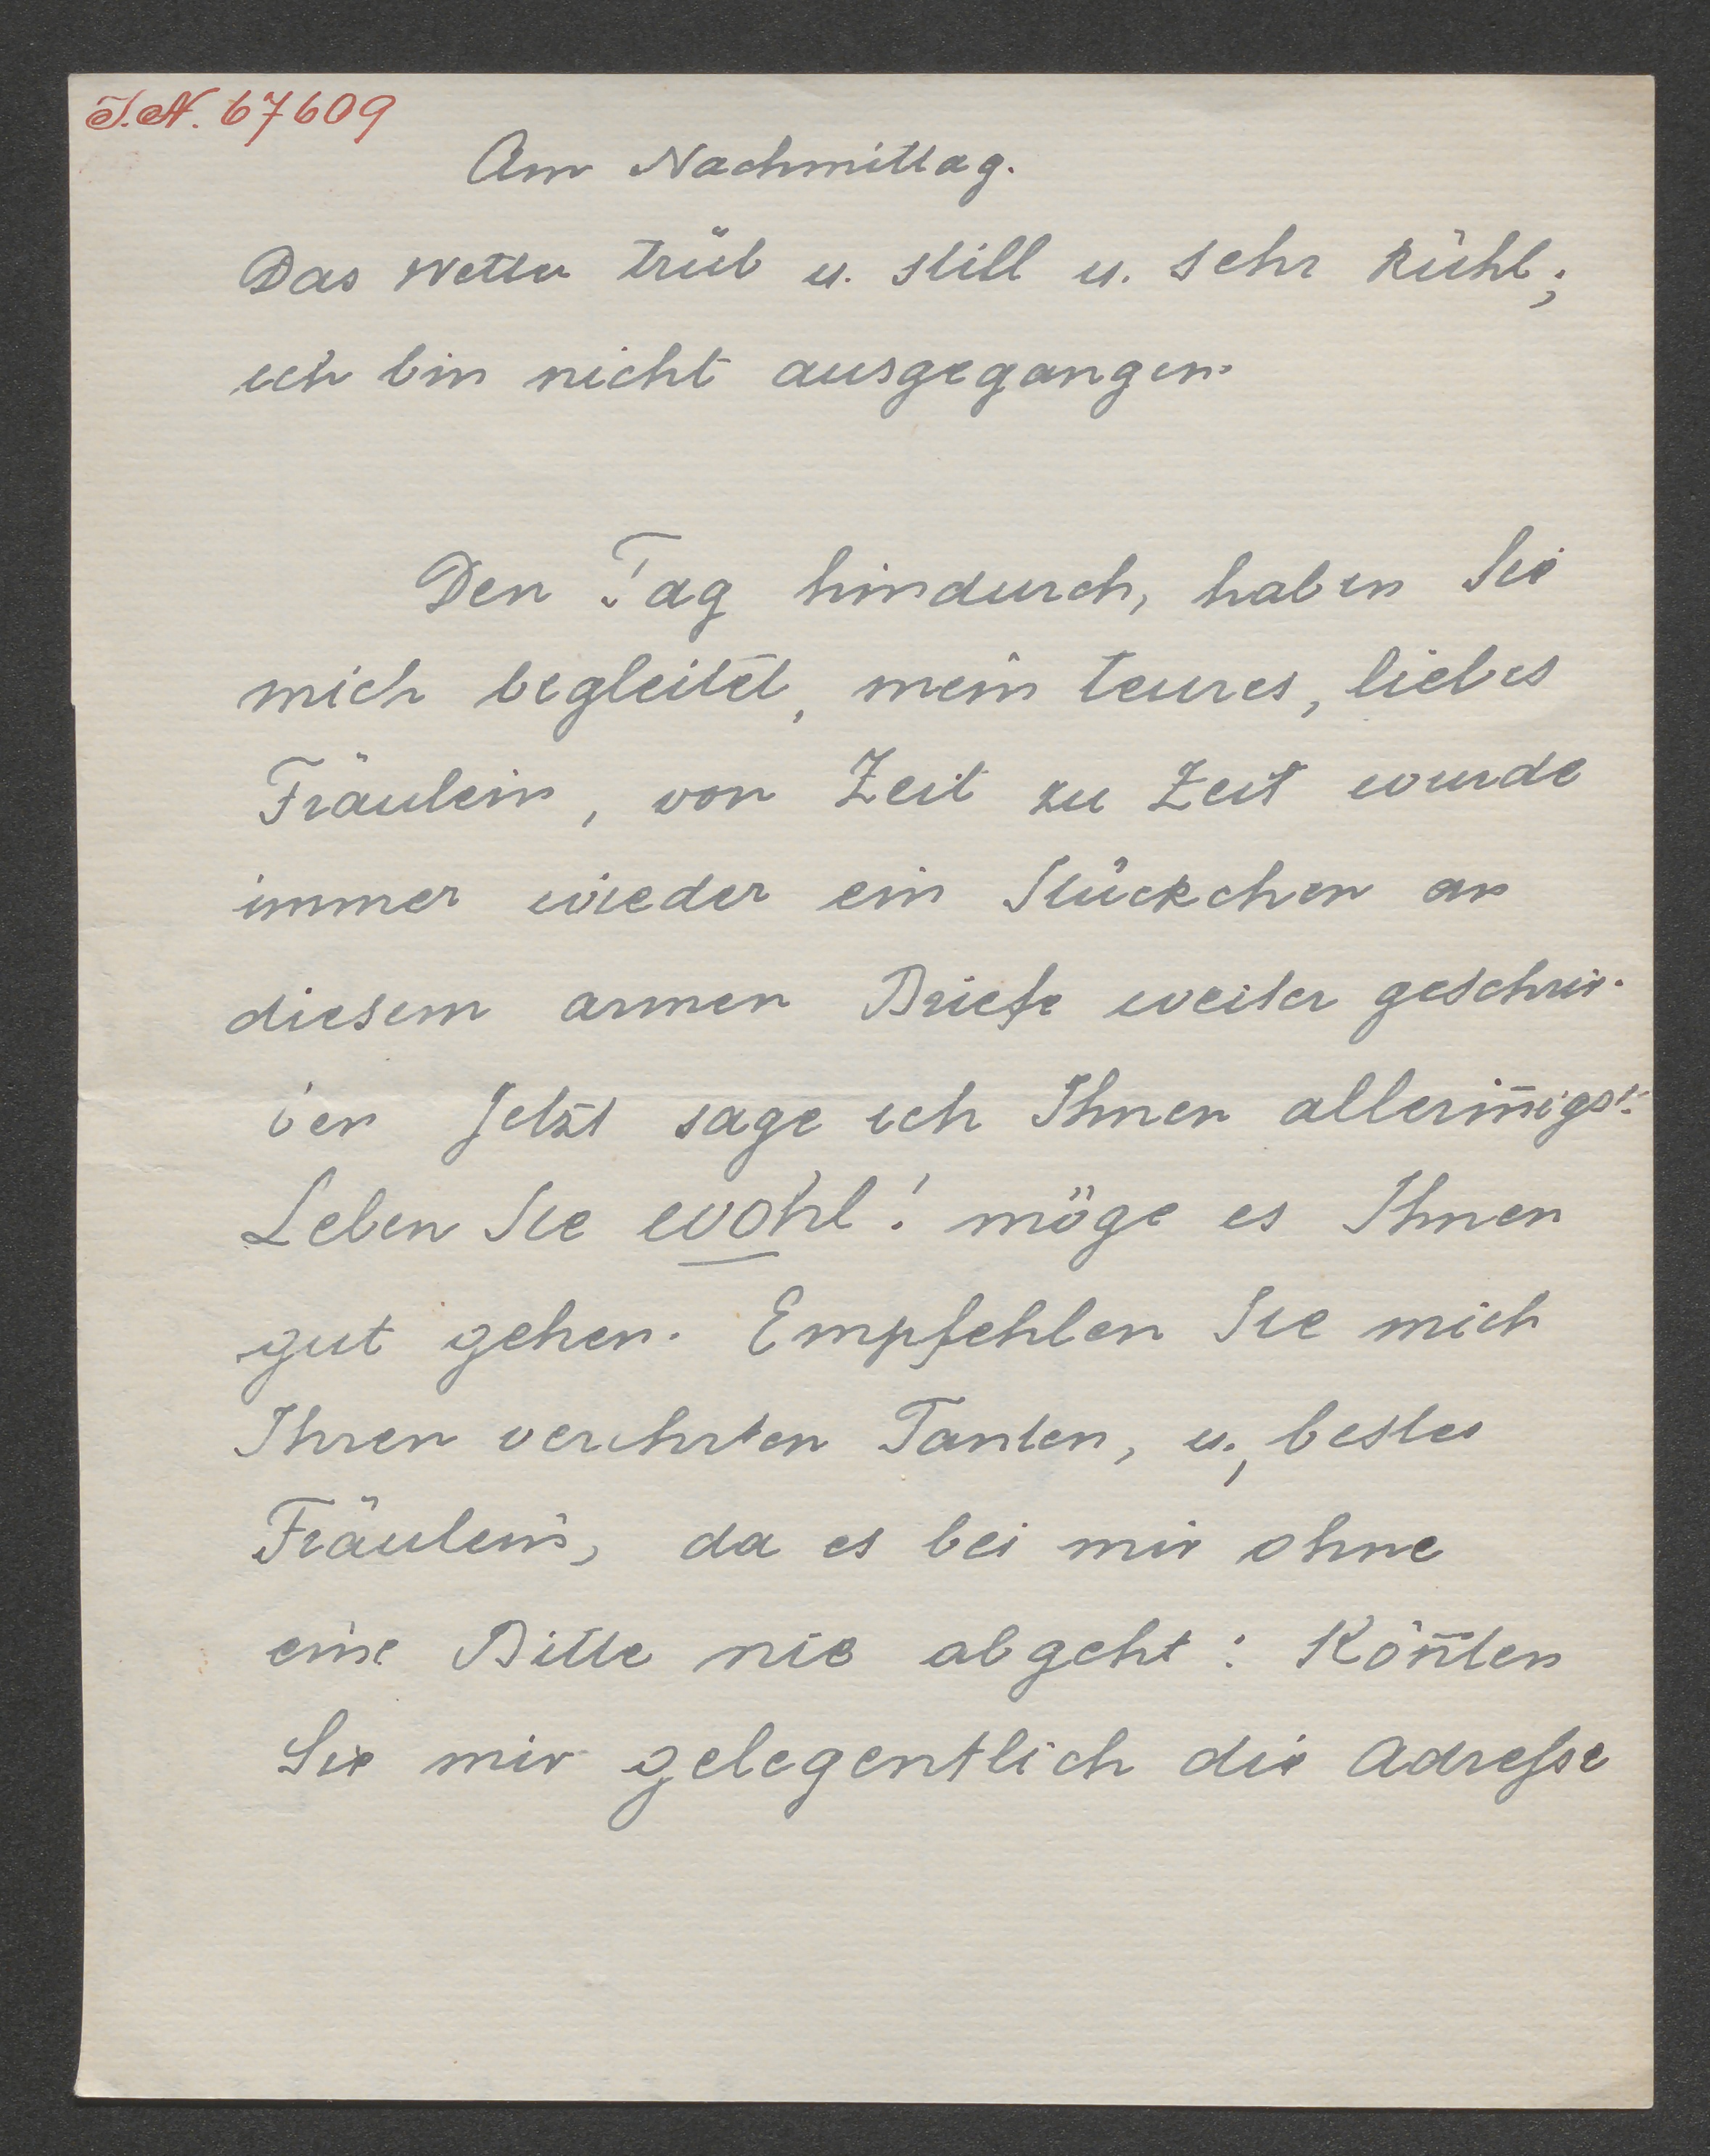 I.N. 67609
Am Nachmittag.
Das Wetter trüb u. still u. sehr kühl;
ich bin nicht ausgegangen.
Den Tag hindurch, haben Sie
mich begleitet, mein teures, liebes
Fräulein, von Zeit zu Zeit wurde
immer wieder ein Stückchen an
diesem armen Briefe weiter geschrie-
ben Jetzt sage ich Ihnen allerin̄igst:
Leben Sie wohl! möge es Ihnen
gut gehen. Empfehlen Sie mich
Ihren verehrten Tanten, u., bestes
Fräulein, da es bei mir ohne
eine Bitte nie abgeht: Kön̄ten
Sie mir gelegentlich die Adreſse